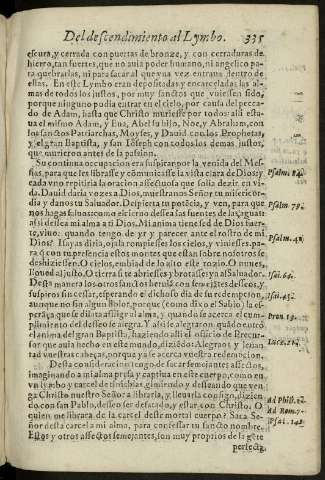 Del descendimiento al Lymbo. 335
escura, y cerrada con puertas de bronze, y con cerraduras de
hierro, tan fuertes, que no auia poder humano, ni angelico para
quebrarlas, ni para sacar al que vna vez entraua dentro de
ellas. En este Lymbo eran depositadas y encarceladas las al-
mas de todos los justos, por muy sanctos que vuiessen sido,
porque ninguno podia entrar en el cielo, por causa del pecca-
do de Adam, hasta que Christo muriesse por todos: alli esta-
ua el mismo Adam, y Eua, Abel su hijo, Noe, y Abraham, con
los sanctos Patriarchas, Moyses, y Dauid con los Prophetas,
y el gran Baptista, y san Ioseph con todos los demas justos,
que murieron antes de la passion.
Su continua occupacion era suspirar por la venida del Mes-
sias, para que les librasse y comunicasse la vista clara de Dios: y
cada vno repitiria la oracion affectuosa que solia dezir en vi-
da. Dauid diria vezes a Dios, muestranos Señor tu misericor-
dia, y danos tu Saluador. Despierta tu potēcia, y ven, para que
nos hagas saluos: como el cieruo dessea las fuentes de las aguas
assi dessea mi alma a ti Dios. Mi anima tiene sed de Dios fuer-
te, viuo: quando tengo de yr y parecer ante el rostro de mi
Dios? Isayas diria, ojala rompiesses los cielos, y viniesses, pa-
ra q̄ con tu presencia estos montes que estan sobre nosotros se
deshiziessen. O cielos, embiad de lo alto este rozio, O nuues,
lloued al justo. O tierra si te abriesses y brotasses ya al Saluador.
Desta manera los otros sanctos heruiā con semejātes desseos, y
suspiros sin cessar, esperando el dichoso dia de su redempcion,
aunque no sin algun dolor, porque (como dixo el Sabio) la es-
perāça que se dilata afflige al alma, y quando se acerca el cum-
plimiento del desseo la alegra. Y assi se alegraron quādo entrò
el anima del gran Baptista, haziendo alli el officio de Precur-
sor que auia hecho en este mundo, diziēdo: Alegraos y leuan-
tad vuestras cabeças, porque ya se acerca vuestra redempcion.
Desta consideracion tengo de sacar semejantes affectos,
imaginando a mi alma presa y captiua en este cuerpo, como en
vn lymbo y carcel de tinieblas, gimiendo y desseando que ven-
ga Christo nuestro Señor a librarla, y lleuarla consigo, dizien-
do con san Pablo, desseo ser desatado, y estar con Christo. O
quien me librara de la carcel deste mortal cuerpo? Saca Se-
ñor desta carcel a mi alma, para confessar tu sancto nombre.
Estos y otros affectos semejantes, son muy proprios de la gēte
perfecta,
Psalm. 84.
Psalm. 79.
Psalm. 41.
Isai. 64.
Isai. 45.
Prou. 13.
Luce. 21.
Ad Phil.
Ad Rom. 7.
Psal. 141.